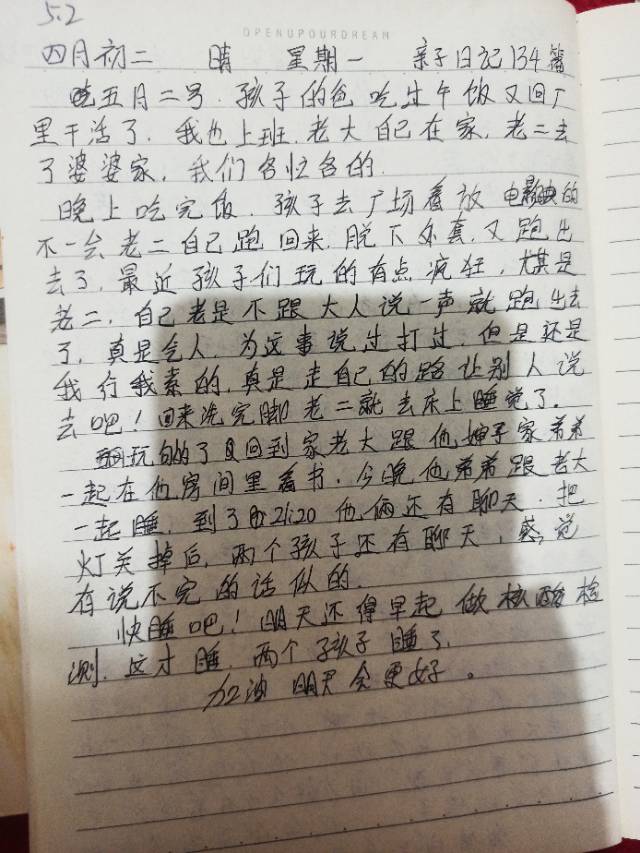 5.2
OPENUPOURDREAM
四月初二 晴 星期一 亲子日记134篇
五月二号.孩子的爸吃过午饭又回厂
里干活了.我也上班.老大自己在家.老二去
了婆婆家.我们各忙各的.
晚上吃完饭.孩子去广场看放电影的
不一会老二自己跑回来.脱下外套.又跑出
去了.最近孩子们玩的有点疯狂,尤其是
老二.自己老是不跟大人说一声就跑出去
了.真是气人.为这事说过打过.但是还是
我行我素的.真是走自己的路让别人说
去吧!回来洗完脚老二就去床上睡觉了.
玩的了回到家老大跟他婶子家弟弟
一起在他房间里看书.今晚他弟弟跟老大
一起睡.到了21:20他俩还有聊天.把
灯关掉后.两个孩子还有聊天,感觉
有说不完的话似的.
快睡吧!明天还得早起做核酸检
测.这才睡.两个孩子睡了.
加油 明天会更好。